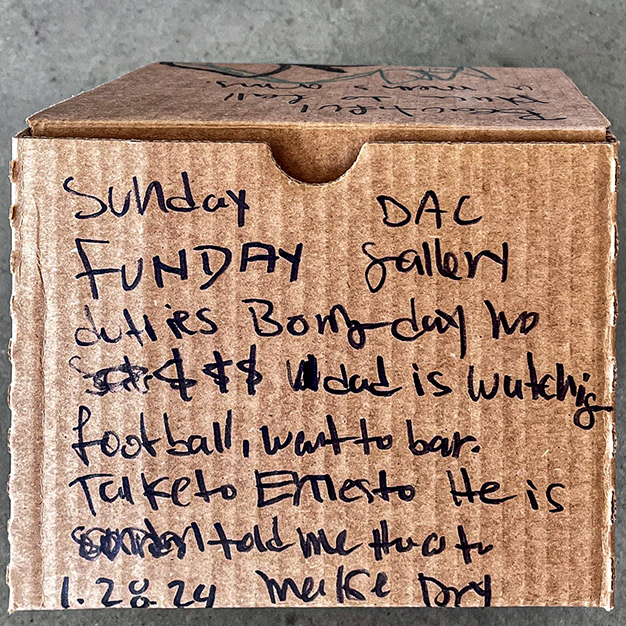 Perfect
place to fall
a man's arms
Sunday DAC
FUNDAY Gallery
duties day no
$$$ dad is watching
football, want to bar.
Talke to Ernesto He is
told me
1.28.24 make Dry